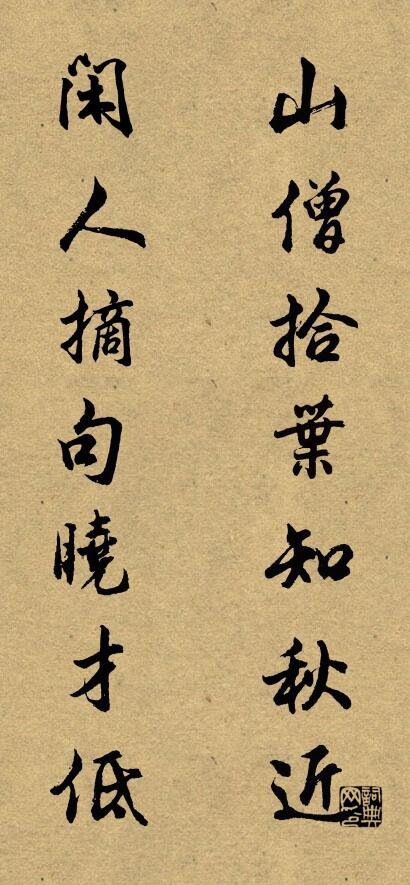 山僧拾葉知秋近
閑人摘句曉才低
詞典网